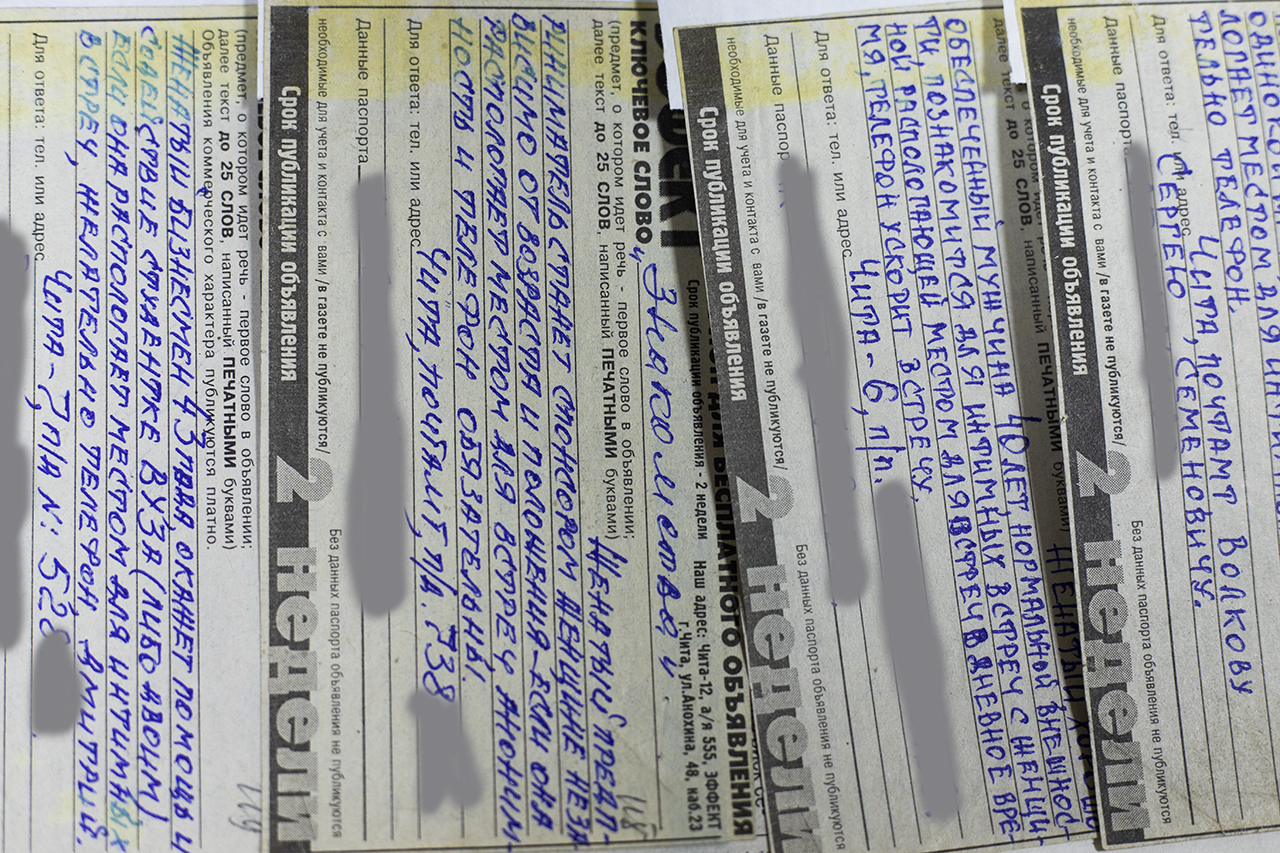 (предмет, о котором идет речь - первое слово в объявлении;
далее текст до 25 СЛОВ, написанный ПЕЧАТНЫМИ буквами)
Объявления коммерческого характера публикуются платно.
ЖЕНАТЫЙ БИЗНЕСМЕН 43 года, ОКАЖЕТ ПОМОЩЬ И
СОДЕЙСТВИЕ СТУДЕНТКЕ ВУЗА (ЛИБО ДВОИМ)
ЕСЛИ ОНА РАСПОЛОГАЕТ МЕСТОМ ДЛЯ ИНТИМНЫХ
ВСТРЕЧ, ЖЕЛАТЕЛЬНО ТЕЛЕФОН, ДМИТРИЙ.
Для ответа: тел. или адрес
Чита-7, п/я N: 52
КЛЮЧЕВОЕ СЛОВО
Знакомства
(предмет, о котором идет речь - первое слово в объявлении;
далее текст до 25 СЛОВ, написанный ПЕЧАТНЫМИ буквами)
ЖЕНАТЫЙ ПРЕДП-
РИНИМАТЕЛЬ СТАНЕТ СПОНСОРОМ ЖЕНЩИНЕ НЕЗА
ВИСИМО ОТ ВОЗРАСТА И ПОЛОЖЕНИЯ-ЕСЛИ ОНА
РАСПОЛОГАЕТ МЕСТОМ ДЛЯ ВСТРЕЧ АНОНИМ-
НОСТЬ И ТЕЛЕФОН ОБЯЗАТЕЛЬНЫ.
Для ответа: тел. или адрес
Чита, почтамт, п/я. 738
Данные паспорта
необходимые для учета и контакта с вами /в газете не публикуются/
Без данных паспорта объявления не публикуются
Срок публикации объявления
2 недели
БЕСПЛАТНОГО ОБЪЯВЛЕНИЯ
Срок публикации объявления - 2 недели Наш адрес: Чита-12, а/я 555, ЭФФЕКТ
г.Чита, ул.Анохина, 48, каб.23
далее текст
ОБЕСПЕЧЕННЫЙ МУЖЧИНА 40 ЛЕТ НОРМАЛЬНОЙ ВНЕШНОС-
ТИ, ПОЗНАКОМИТСЯ ДЛЯ ИНТИМНЫХ ВСТРЕЧ С ЖЕНЩИ-
НОЙ РАСПОЛОГАЮЩЕЙ МЕСТОМ ДЛЯ ВСТРЕЧ В ДНЕВНОЕ ВРЕ-
МЯ, ТЕЛЕФОН УСКОРИТ ВСТРЕЧУ.
Для ответа: тел. или адрес
Чита-6, п/п.
Данные паспор
необходимые для учета и контакта с вами /в газете не публикуются/
Без данных паспорта объявления не публикуются
Срок публикации объявления
2 недели
25 СЛОВ, написанный ПЕЧАТНЫМИ буквами)
ЖЕНАТЫЙ
ЛОГАЕТ МЕСТОМ ДЛЯ
ТЕЛЬНО ТЕЛЕФОН.
ЧИТА, ПОЧТАМТ ВОЛКОВУ
СЕРГЕЮ СЕМЕНОВИЧУ.
Для ответа: тел. или адрес
Данные паспорта
необходимые для учета и контакта с вами /в газете не публикуются/
Без данных паспорта объявления не публикуются
Срок публикации объявления
2 недели